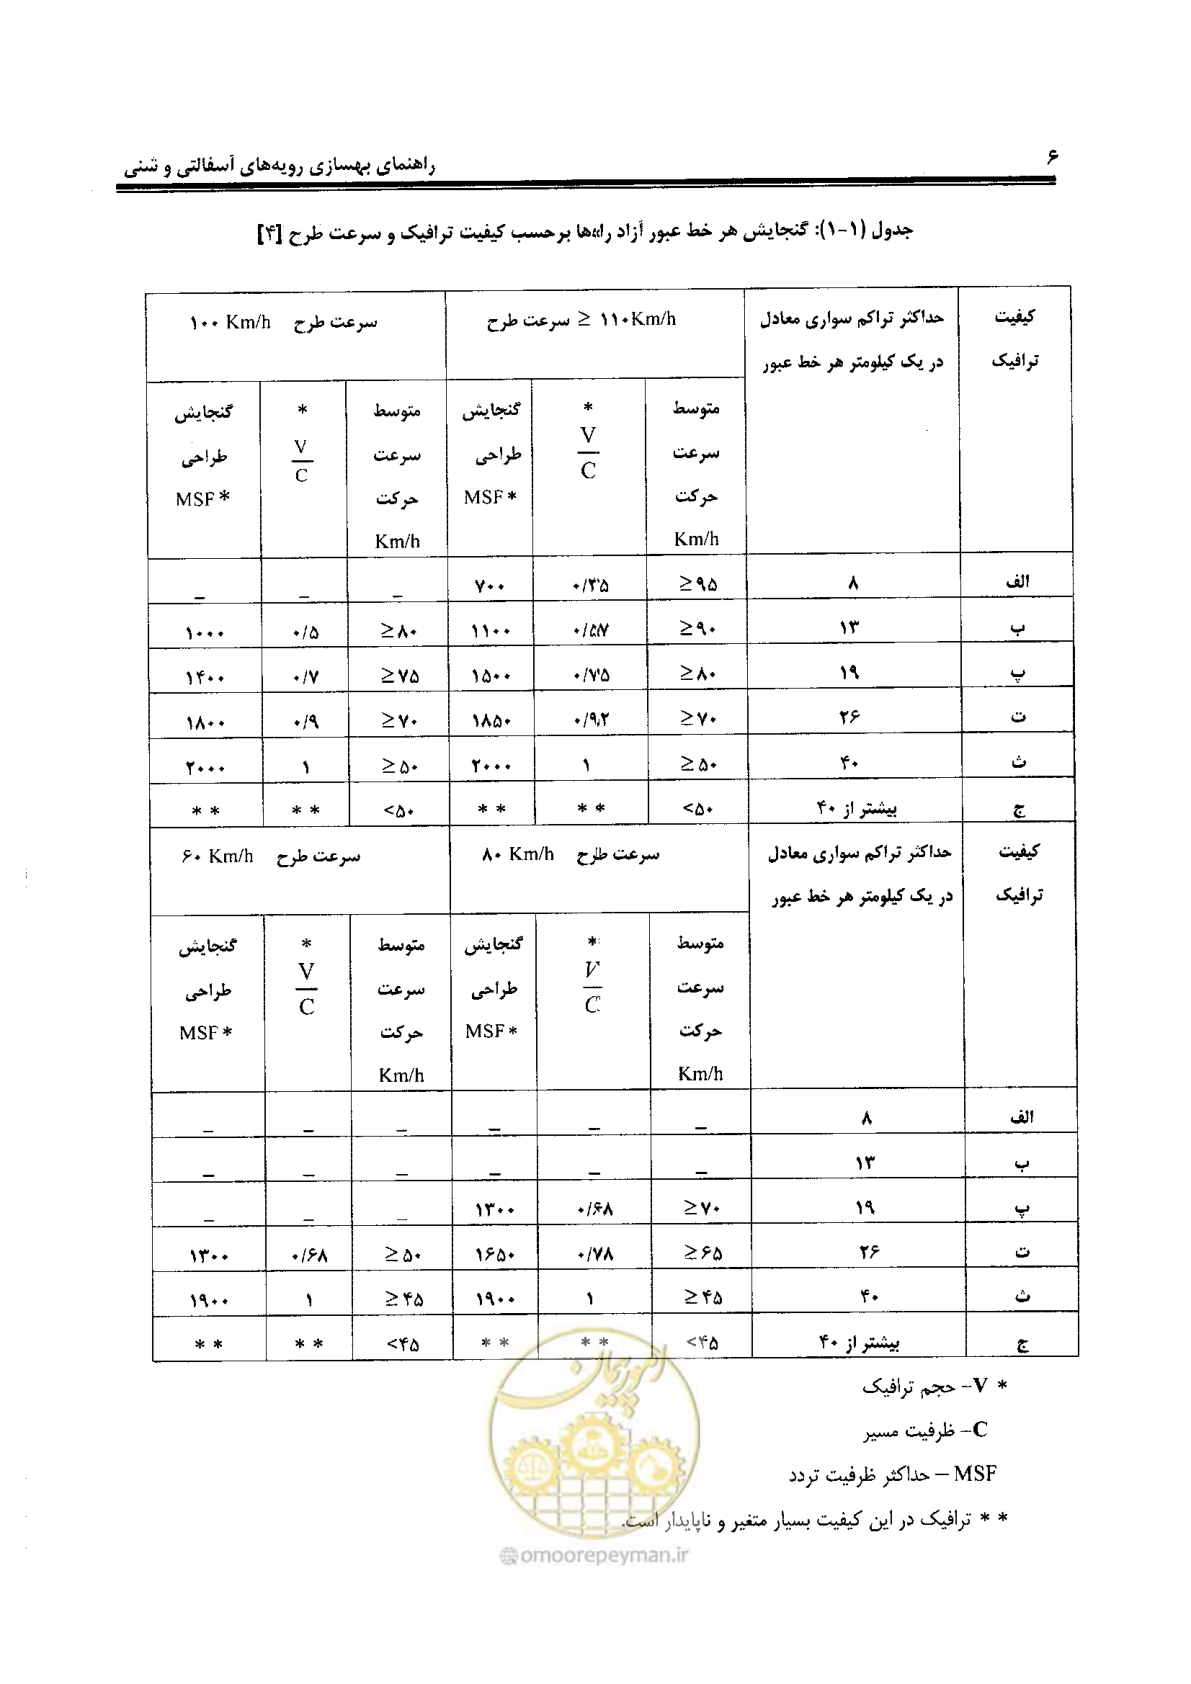 ۶
راهنمای بهسازی رویه‌های آسفالتی و شنی
جدول (۱-۱): گنجایش هر خط عبور آزاد راه‌ها برحسب کیفیت ترافیک و سرعت طرح [۴]
کیفیت ترافیک | حداکثر تراکم سواری معادل در یک کیلومتر هر خط عبور | سرعت طرح ≥ ۱۱۰Km/h | سرعت طرح ۱۰۰ Km/h
متوسط سرعت حرکت Km/h | * V/C | گنجایش طراحی MSF* | متوسط سرعت حرکت Km/h | * V/C | گنجایش طراحی MSF*
الف | ۸ | ≥۹۵ | ۰/۳۵ | ۷۰۰ | – | – | –
ب | ۱۳ | ≥۹۰ | ۰/۵۷ | ۱۱۰۰ | ≥۸۰ | ۰/۵ | ۱۰۰۰
پ | ۱۹ | ≥۸۰ | ۰/۷۵ | ۱۵۰۰ | ≥۷۵ | ۰/۷ | ۱۴۰۰
ت | ۲۶ | ≥۷۰ | ۰/۹۲ | ۱۸۵۰ | ≥۷۰ | ۰/۹ | ۱۸۰۰
ث | ۴۰ | ≥۵۰ | ۱ | ۲۰۰۰ | ≥۵۰ | ۱ | ۲۰۰۰
ج | بیشتر از ۴۰ | <۵۰ | * * | * * | <۵۰ | * * | * *
کیفیت ترافیک | حداکثر تراکم سواری معادل در یک کیلومتر هر خط عبور | سرعت طرح ۸۰ Km/h | سرعت طرح ۶۰ Km/h
متوسط سرعت حرکت Km/h | * V/C | گنجایش طراحی MSF* | متوسط سرعت حرکت Km/h | * V/C | گنجایش طراحی MSF*
الف | ۸ | – | – | – | – | – | –
ب | ۱۳ | – | – | – | – | – | –
پ | ۱۹ | ≥۷۰ | ۰/۶۸ | ۱۳۰۰ | – | – | –
ت | ۲۶ | ≥۶۵ | ۰/۷۸ | ۱۶۵۰ | ≥۵۰ | ۰/۶۸ | ۱۳۰۰
ث | ۴۰ | ≥۴۵ | ۱ | ۱۹۰۰ | ≥۴۵ | ۱ | ۱۹۰۰
ج | بیشتر از ۴۰ | <۴۵ | * * | * * | <۴۵ | * * | * *
* V– حجم ترافیک
C– ظرفیت مسیر
MSF – حداکثر ظرفیت تردد
* * ترافیک در این کیفیت بسیار متغیر و ناپایدار است.
امورپیمان
@omoorepeyman.ir